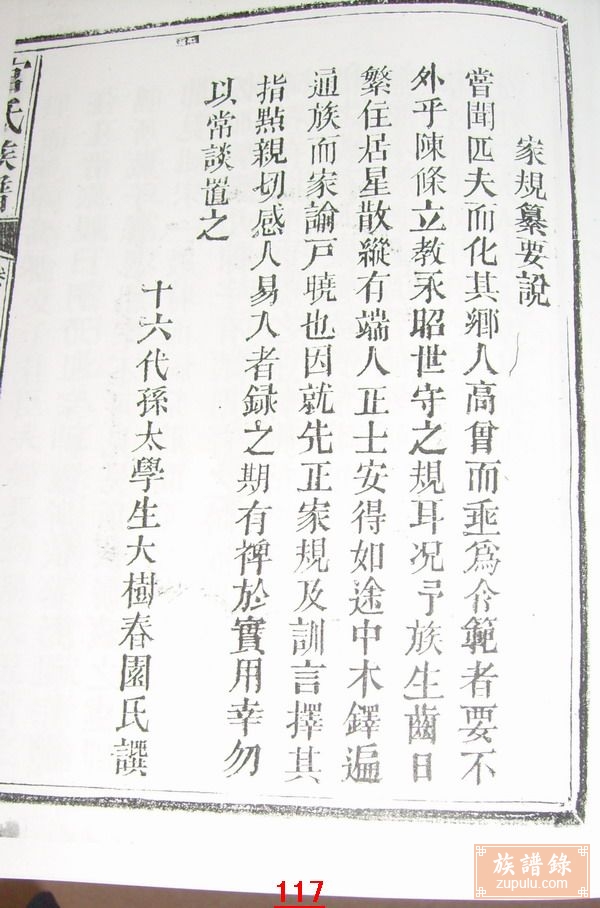 家規纂要說
嘗聞匹夫而化其鄉人高曾而垂為令範者要不
外乎陳條立教永昭世守之規耳况予族生齒日
繁住居星散縱有端人正士安得如途中木鐸遍
通族而家諭戶曉也因就先正家規及訓言擇其
指點親切感人易入者録之期有裨於實用幸勿
以常談置之
十六代孫太學生大樹春園氏譔
氏族譜
族譜錄
zupulu.com
117